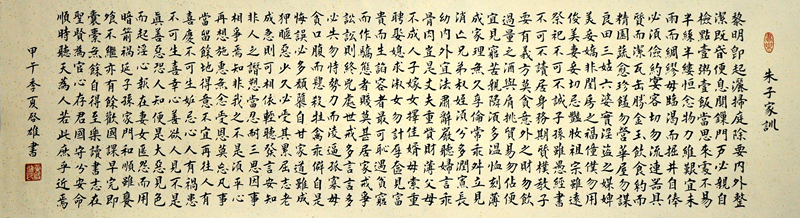 朱子家訓
黎明即起灑掃庭除要内外整
潔既昏便息關鎖門户必親自
檢點壹粥壹飯當思來處不易
半絲半縷恒念物力維艱宜未
雨而綢繆毋臨渴而掘井自奉
必須儉約宴客切勿流連器具
質而潔瓦缶勝金玉飲食約而
精園蔬愈珍饈勿營華屋勿謀
良田三姑六婆實淫盜之媒婢
美妾嬌非閨房之福僮僕勿用
俊美妻妾切忌艷妝祖宗雖遠
祭祀不可不誠子孫雖愚經書
不可不讀居身務期質樸教子
要有義方莫貪意外之財勿飲
過量之酒與肩挑貿易勿佔便
宜見貧苦親鄰須多溫恤刻薄
成家理無久享倫常乖舛立見
消亡兄弟叔姪須分多潤寡長
幼内外宜法肅辭嚴聽婦言乖
骨肉豈是丈夫重貲財薄父母
不成人子嫁女擇佳婿毋索重
聘娶媳求淑女勿計厚奩見富
貴而生諂容者最可恥遇貧窮
而作驕態者賤莫甚居家戒爭
訟訟則終凶處世戒多言言多
必失勿恃勢力而凌逼孤寡毋
貪口腹而恣殺牲禽乖僻自是
悔誤必多頹惰自甘家道難成
狎暱惡少久必受其累屈志老
成急則可相依輕聽發言安知
非人之譖愬當忍耐三思因事
相爭焉知非我之不是須平心
再想施惠無念受恩莫忘凡事
當留餘地得意不宜再往人有
喜慶不可生妒忌心人有禍患
不可生喜幸心善欲人見不是
真善惡恐人知便是大惡見色
而起淫心報在妻女匿怨而用
暗箭禍延子孫家門和順雖饔
飧不繼亦有餘歡國課早完即
囊橐無餘自得至樂讀書志在
聖賢為官心存君國守分安命
順時聽天為人若此庶乎近焉
甲午季夏啓雄書